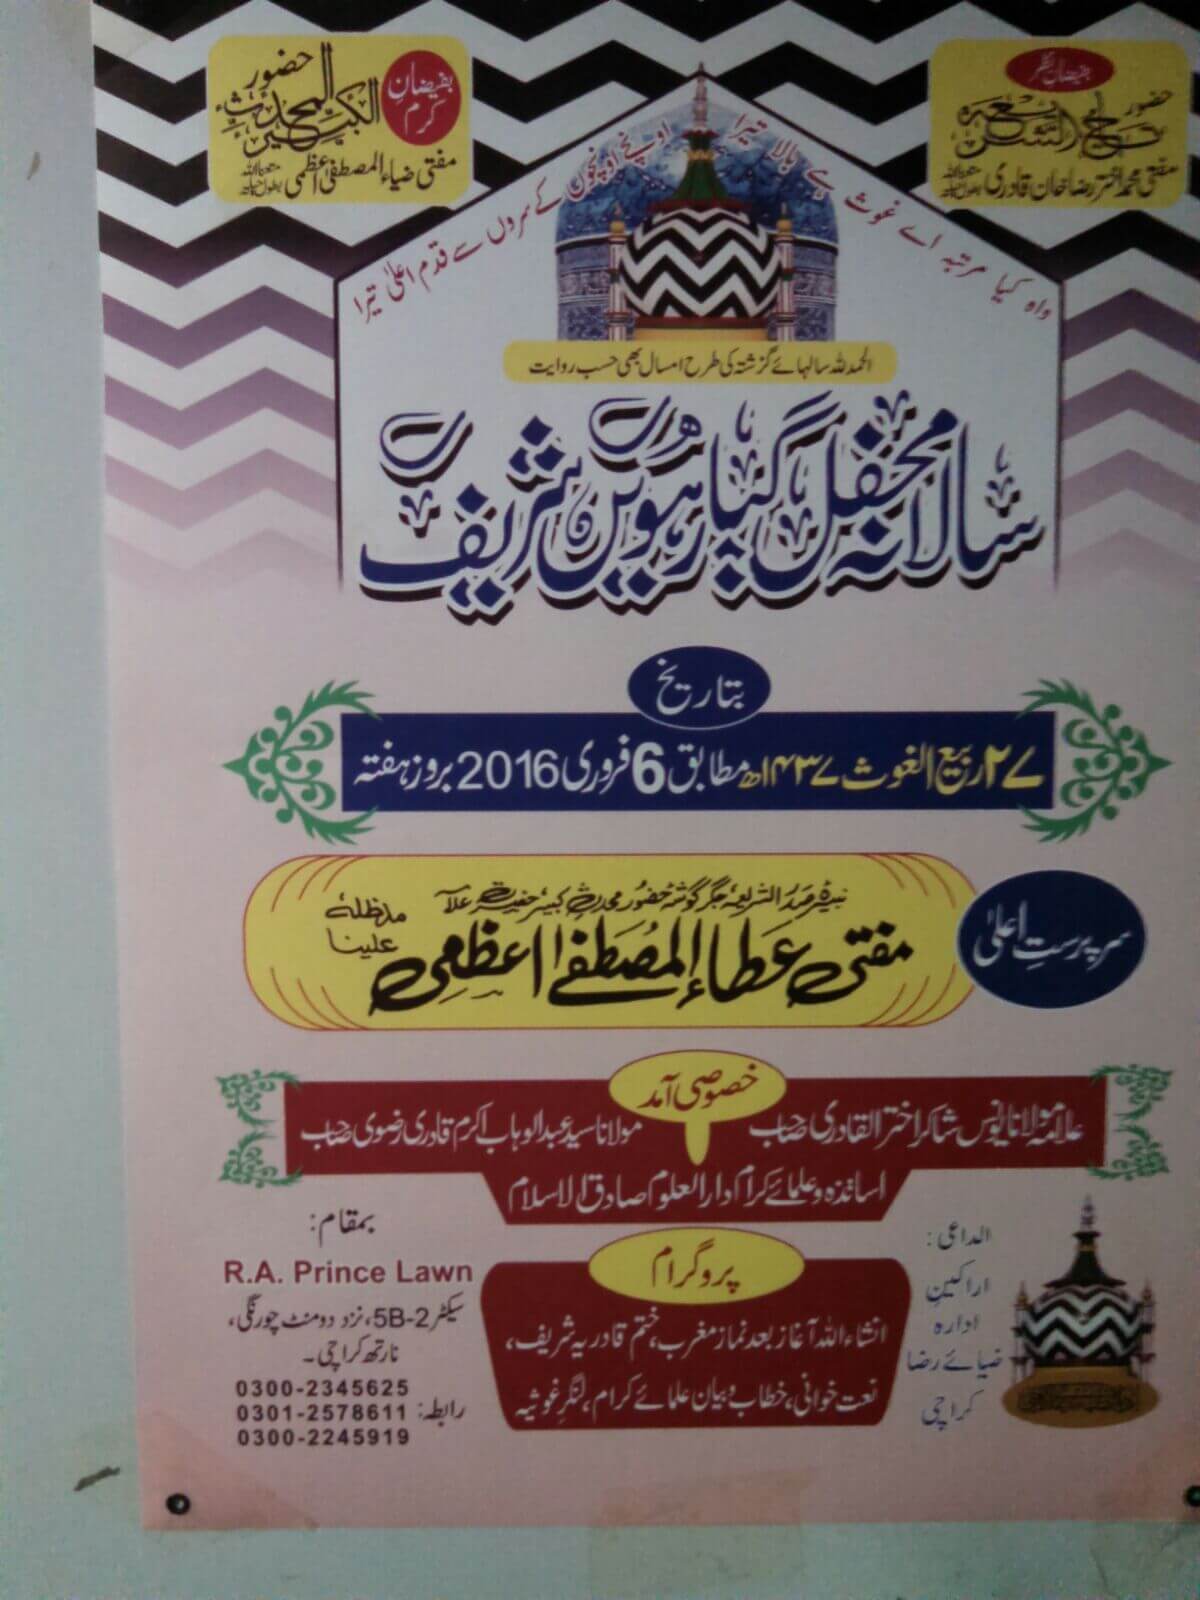 بفیضانِ نظر
حضور
تاج الشریعہ
مفتی محمد اختر رضا خان قادری
بفیضانِ کرم
حضور
المحدث الکبیر
مفتی ضیاء المصطفیٰ اعظمی
واہ کیا مرتبہ اے غوث ہے بالا تیرا
اونچے اونچوں کے سروں سے قدم اعلیٰ تیرا
الحمد للہ سالہائے گزشتہ کی طرح امسال بھی حسب روایت
سالانہ محفل گیارہویں شریف
بتاریخ
۲۷ ربیع الغوث ۱۴۳۷ھ مطابق 6 فروری 2016 بروز ہفتہ
سرپرستِ اعلیٰ
نبیرۂ صدر الشریعہ جگر گوشۂ حضور محدث کبیر حضرت علامہ
مفتی عطاء المصطفیٰ اعظمی
مدظلہ علینا
خصوصی آمد
علامہ مولانا یونس شاکر اختر القادری صاحب
مولانا سید عبد الوہاب اکرم قادری رضوی صاحب
اساتذہ و علمائے کرام دار العلوم صادق الاسلام
پروگرام
انشاء اللہ آغاز بعد نماز مغرب، ختم قادریہ شریف،
نعت خوانی، خطاب و بیان علمائے کرام، لنگرِ غوثیہ
الداعی :
اراکینِ
ادارہ
ضیائے رضا
کراچی
بمقام:
R.A. Prince Lawn
سیکٹر 5B-2، نزد دو منٹ چورنگی،
نارتھ کراچی۔
0300-2345625
رابطہ: 0301-2578611
0300-2245919